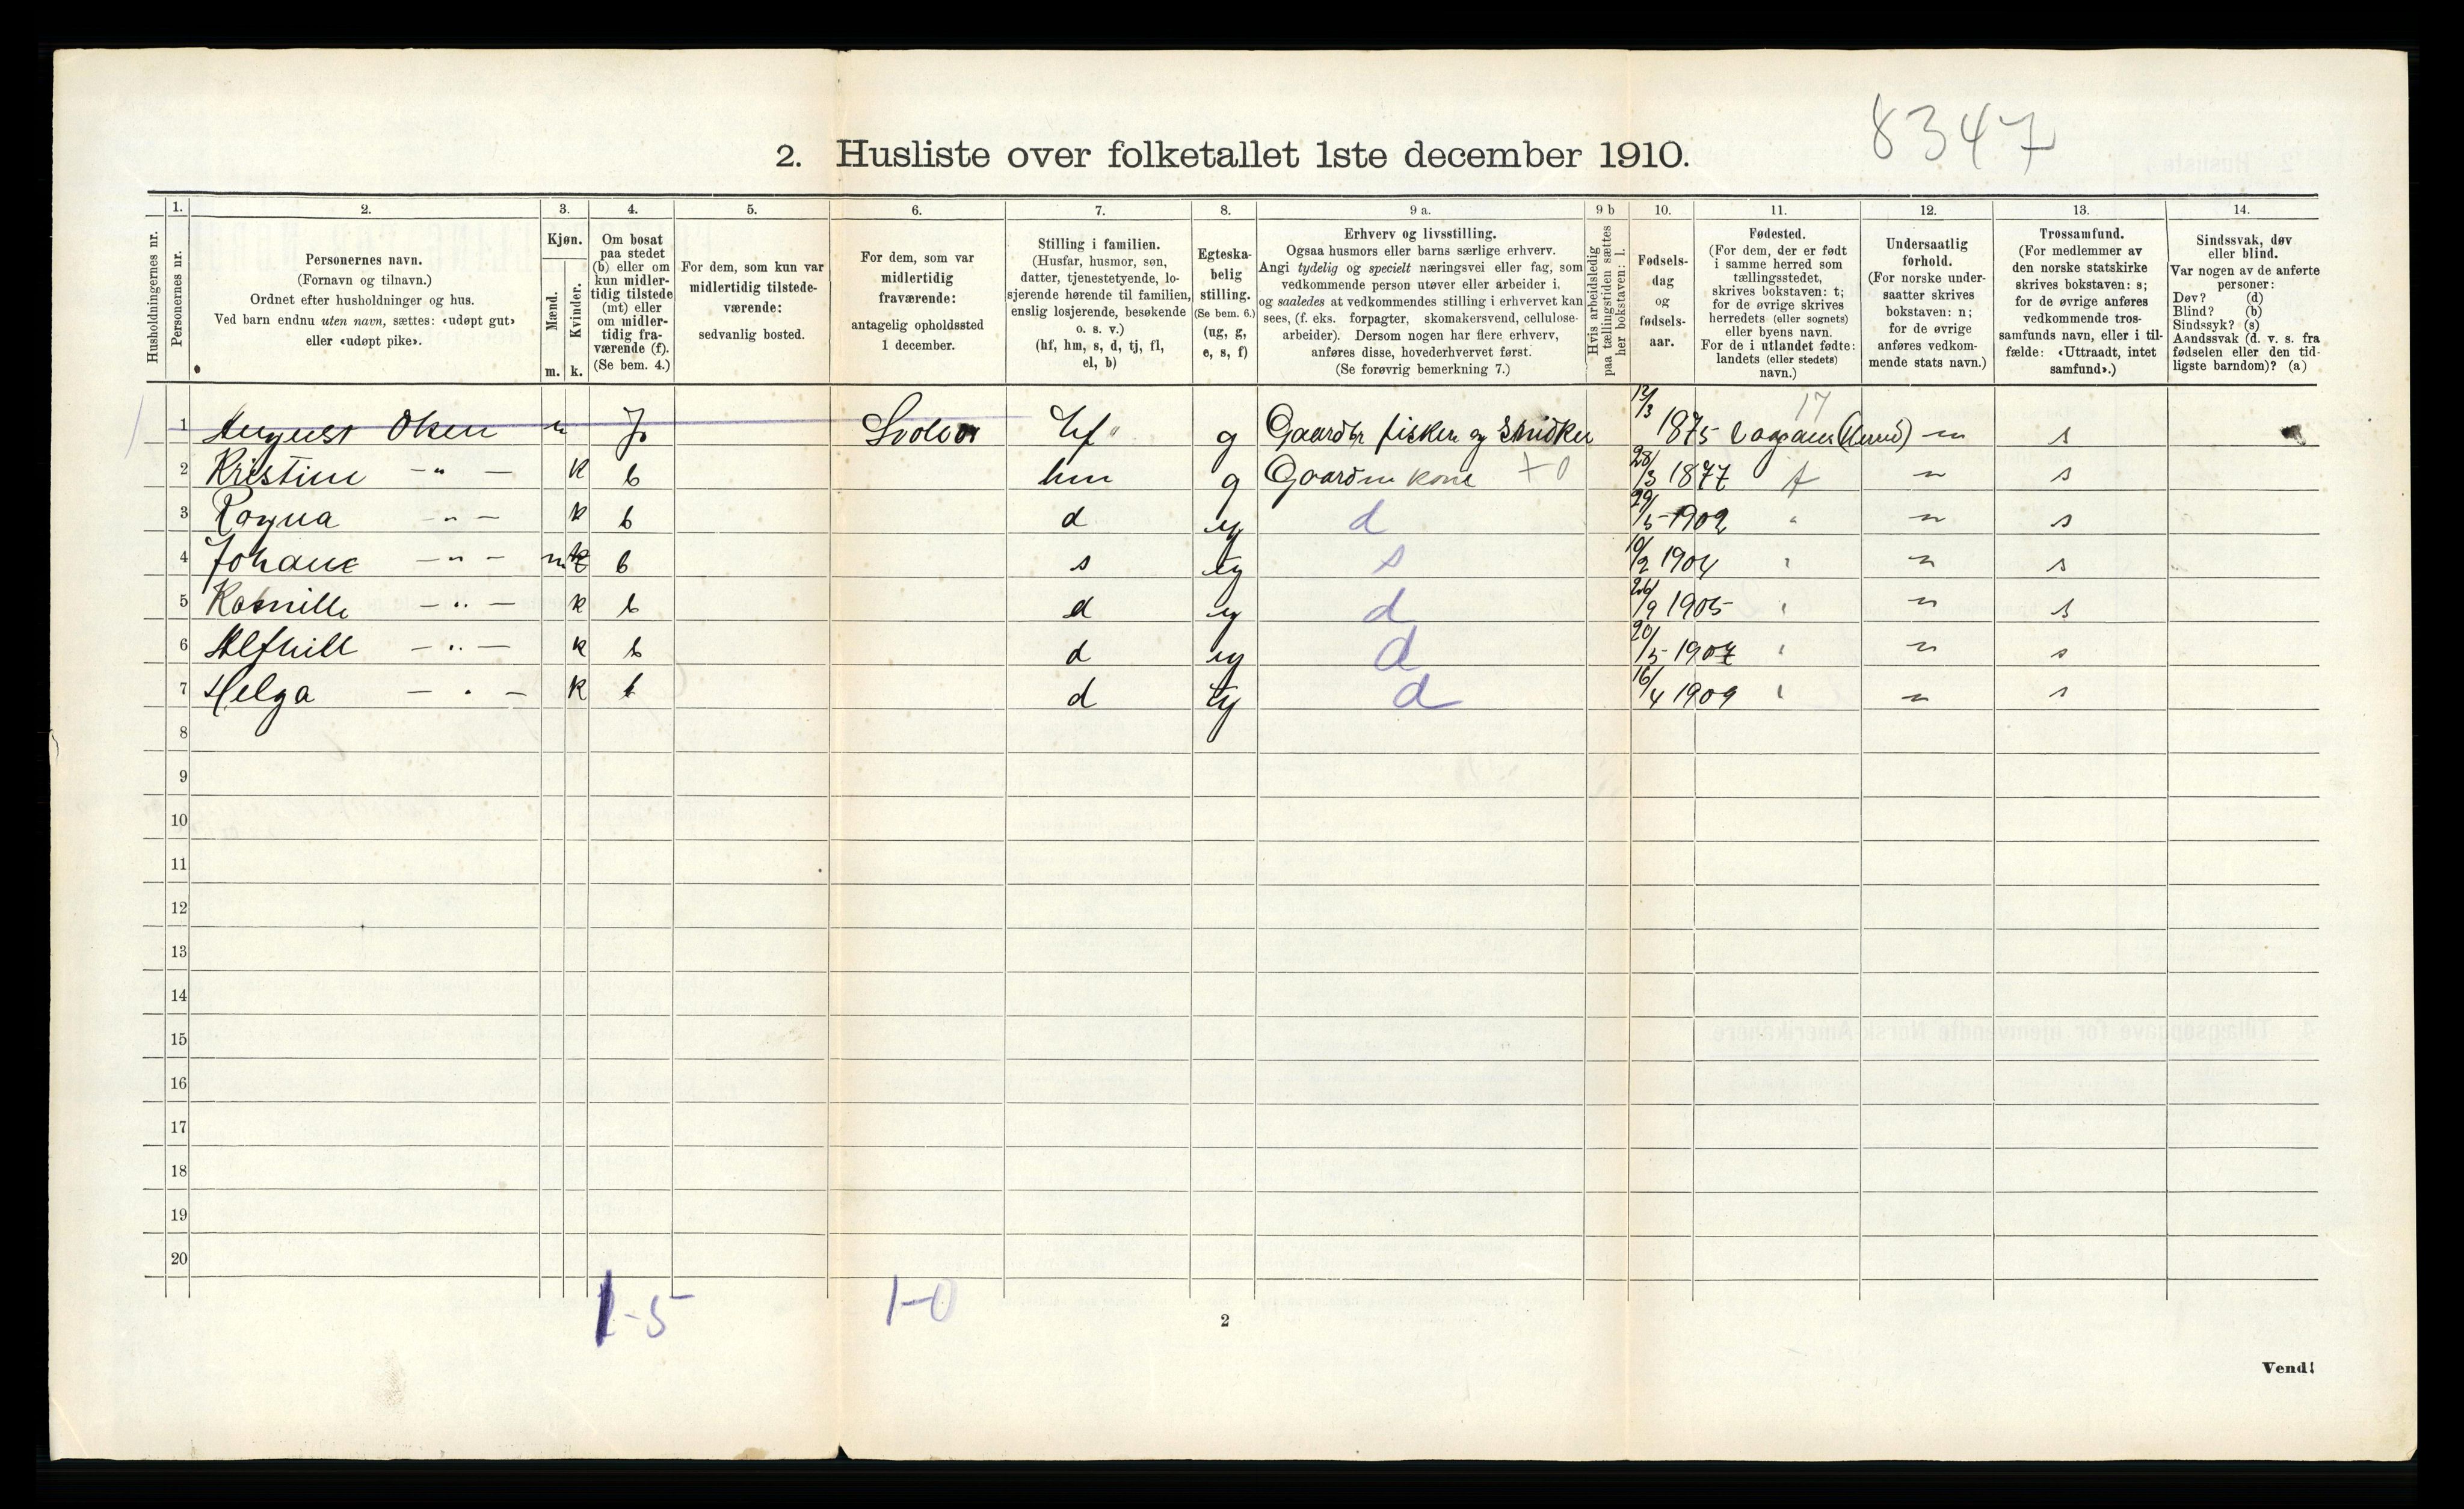 8347
2. Husliste over folketallet 1ste december 1910.
Husholdningernes nr.
1. Personernes nr.
2. Personernes navn.
(Fornavn og tilnavn.)
Ordnet efter husholdninger og hus.
Ved barn endnu uten navn, sættes: «udøpt gut»
eller «udøpt pike».
3. Kjøn.
Mænd. Kvinder.
m. k.
4. Om bosat
paa stedet
(b) eller om
kun midler-
tidig tilstede
(mt) eller
om midler-
tidig fra-
værende (f).
(Se bem. 4.)
5. For dem, som kun var
midlertidig tilstede-
værende:
sedvanlig bosted.
6. For dem, som var
midlertidig
fraværende:
antagelig opholdssted
1 december.
7. Stilling i familien.
(Husfar, husmor, søn,
datter, tjenestetyende, lo-
sjerende hørende til familien,
enslig losjerende, besøkende
o. s. v.)
(hf, hm, s, d, tj, fl,
el, b)
8. Egteska-
belig
stilling.
(Se bem. 6.)
(ug, g,
e, s, f)
9 a. Erhverv og livsstilling.
Ogsaa husmors eller barns særlige erhverv.
Angi tydelig og specielt næringsvei eller fag, som
vedkommende person utøver eller arbeider i,
og saaledes at vedkommendes stilling i erhvervet kan
sees, (f. eks. forpagter, skomakersvend, cellulose-
arbeider). Dersom nogen har flere erhverv,
anføres disse, hovederhvervet først.
(Se forøvrig bemerkning 7.)
9 b Hvis arbeidsledig
paa tællingstiden sættes
her bokstaven: l.
10. Fødsels-
dag
og
fødsels-
aar.
11. Fødested.
(For dem, der er født
i samme herred som
tællingsstedet,
skrives bokstaven: t;
for de øvrige skrives
herredets (eller sognets)
eller byens navn.
For de i utlandet fødte:
landets (eller stedets)
navn.)
12. Undersaatlig
forhold.
(For norske under-
saatter skrives
bokstaven: n;
for de øvrige
anføres vedkom-
mende stats navn.)
13. Trossamfund.
(For medlemmer av
den norske statskirke
skrives bokstaven: s;
for de øvrige anføres
vedkommende tros-
samfunds navn, eller i til-
fælde: «Uttraadt, intet
samfund».)
14. Sindssvak, døv
eller blind.
Var nogen av de anførte
personer:
Døv? (d)
Blind? (b)
Sindssyk? (s)
Aandssvak (d. v. s. fra
fødselen eller den tid-
ligste barndom)? (a)
17
1 August Olsen m f Svolvær hf g Gaardbr fisker og Snidker 12/3 1875 n s
2 Kristine -"- k b hm g Gaardm kone +0 28/3 1877 t n s
3 Ragna -"- k b d ug d 29/5 1902 " n s
4 Johane -"- m b s ug s 10/2 1904 " n s
5 Kamille -"- k b d ug d 26/9 1905 " n s
6 Alfhill -"- k b d ug d 20/5 1907 " n s
7 Helga -"- k b d ug d 16/4 1909 " n s
8
9
10
11
12
13
14
15
16
17
18
19
20
1-5 1-0
2
Vend!